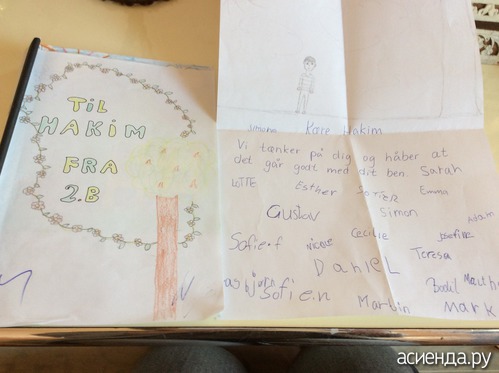 TIL
HAKIM
FRA
2.B
Kære Hakim
Vi tænker på dig og håber at
det går godt med dit ben. Sarah
LOTTE Esther SOFIER Emma
Gustav Simon Adam
Sofie.f Nicour Cecilie Josefine
Daniel Teresa
Asbjørn Sofie.n Martin Bodil
Mark
асиенда.ру